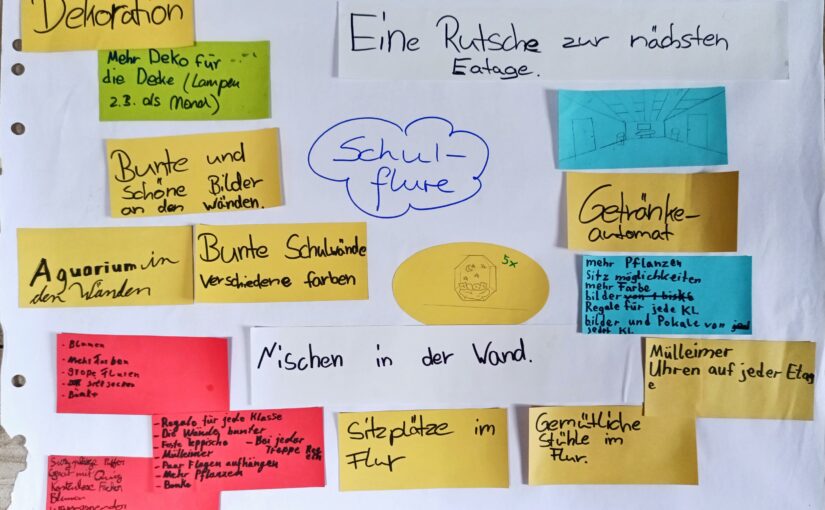 Dekoration
Eine Rutsche zur nächsten
Eatage.
Mehr Deko für
die Decke (Lampen
z.B. als Mond)
Schul-
flure
Bunte und
schöne Bilder
an den Wänden.
Getränke-
automat
Aquarium in
den Wänden
Bunte Schulwände
verschiedene farben
5x
mehr Pflanzen
Sitz möglichkeiten
mehr Farbe
bilder
Regale für jede KL
bilder und Pokale von
jeder KL
- Blumen
- Mehr Farben
- große Fluren
- Sitzsecken
- Bänke
Nischen in der Wand.
Mülleimer
Uhren auf jeder Etag
e
- Regale für jede Klasse
- Die Wände bunter
- Feste Teppische - Bei jeder
- Mülleimer Treppe
- Paar Flagen aufhängen
- Mehr Pflanzen
- Banke
Sitzplätze im
Flur
Gemütliche
Stühle im
Flur.
Kostenlose
Blumen